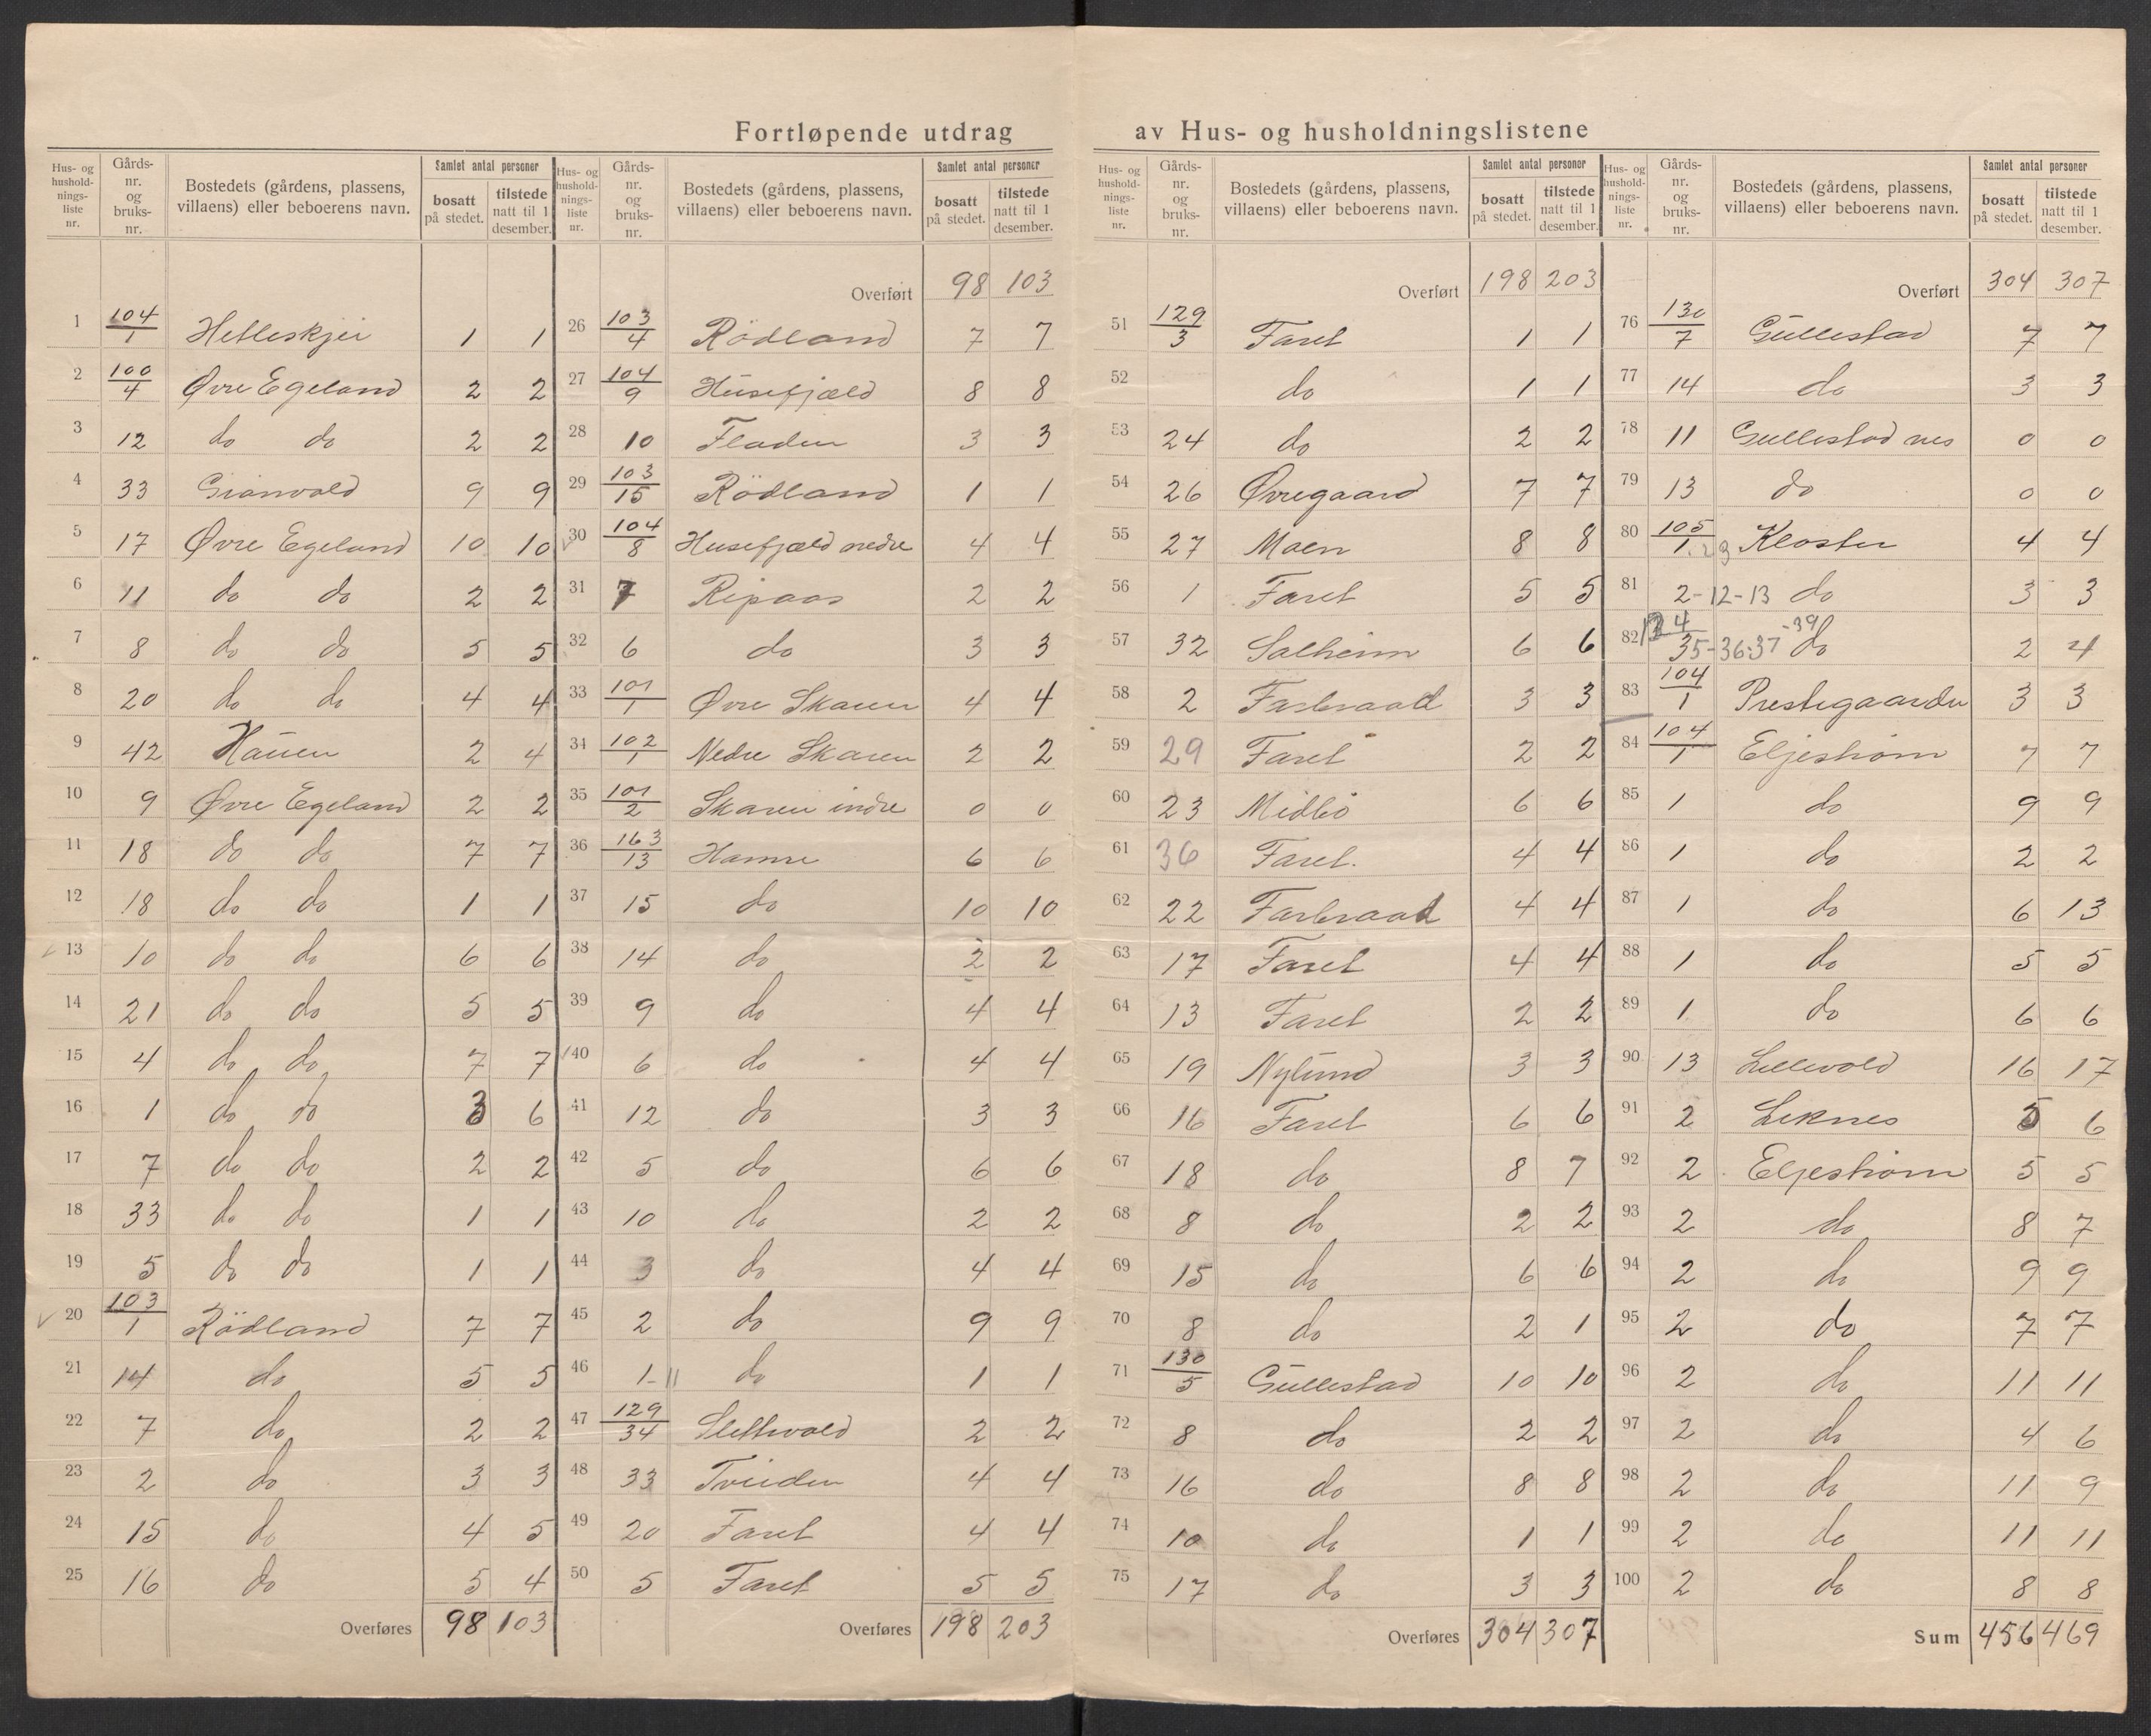 Fortløpende utdrag av Hus- og husholdningslistene
Hus- og husholdningsliste nr. | Gårds-nr. og bruks-nr. | Bostedets (gårdens, plassens, villaens) eller beboerens navn. | Samlet antal personer bosatt på stedet. | tilstede natt til 1 desember.
1 104/1 Helleskjei 1 1
2 100/4 Øvre Egeland 2 2
3 12 do do 2 2
4 33 Granvold 9 9
5 17 Øvre Egeland 10 10
6 11 do do 2 2
7 8 do do 5 5
8 20 do do 4 4
9 42 Hauen 2 4
10 9 Øvre Egeland 2 2
11 18 do do 7 7
12 18 do do 1 1
13 10 do do 6 6
14 21 do do 5 5
15 4 do do 7 7
16 1 do do 3 6
17 7 do do 2 2
18 33 do do 1 1
19 5 do do 1 1
20 103/1 Rödland 7 7
21 14 do 5 5
22 7 do 2 2
23 2 do 3 3
24 15 do 4 5
25 16 do 5 4
Overføres 98 103
Hus- og husholdningsliste nr. | Gårds-nr. og bruks-nr. | Bostedets (gårdens, plassens, villaens) eller beboerens navn. | Samlet antal personer bosatt på stedet. | tilstede natt til 1 desember.
Overført 98 103
26 103/4 Rödland 7 7
27 104/9 Husefjæld 8 8
28 10 Fladen 3 3
29 103/15 Rödland 1 1
30 104/8 Husefjæld nedre 4 4
31 7 Ripaas 2 2
32 6 do 3 3
33 101/1 Øvre Skaren 4 4
34 102/1 Nedre Skaren 2 2
35 101/2 Skaren indre 0 0
36 163/13 Hamre 6 6
37 15 do 10 10
38 14 do 2 2
39 9 do 4 4
40 6 do 4 4
41 12 do 3 3
42 5 do 6 6
43 10 do 2 2
44 3 do 4 4
45 2 do 9 9
46 1-11 do 1 1
47 129/34 Slettvold 2 2
48 33 Tveiden 4 4
49 20 Faret 4 4
50 5 Faret 5 5
Overføres 198 203
Hus- og husholdningsliste nr. | Gårds-nr. og bruks-nr. | Bostedets (gårdens, plassens, villaens) eller beboerens navn. | Samlet antal personer bosatt på stedet. | tilstede natt til 1 desember.
Overført 198 203
51 129/3 Faret 1 1
52 do 1 1
53 24 do 2 2
54 26 Øvregaard 7 7
55 27 Moen 8 8
56 1 Faret 5 5
57 32 Solheim 6 6
58 2 Farbraad 3 3
59 29 Faret 2 2
60 23 Midbö 6 6
61 36 Faret. 4 4
62 22 Farbraad 4 4
63 17 Faret 4 4
64 13 Faret 2 2
65 19 Nylund 3 3
66 16 Faret 6 6
67 18 do 8 7
68 8 do 2 2
69 15 do 6 6
70 8 do 2 1
71 130/5 Gullestad 10 10
72 8 do 2 2
73 16 do 8 8
74 10 do 1 1
75 17 do 3 3
Overføres 304 307
Hus- og husholdningsliste nr. | Gårds-nr. og bruks-nr. | Bostedets (gårdens, plassens, villaens) eller beboerens navn. | Samlet antal personer bosatt på stedet. | tilstede natt til 1 desember.
Overført 304 307
76 130/7 Gullestad 7 7
77 14 do 3 3
78 11 Gullestad nes 0 0
79 13 do 0 0
80 105/1. Kloster 4 4
81 2-12-13 do 3 3
82 35-36-37-39 do 2 4
83 104/1 Prestegaarden 3 3
84 104/1 Eljestrøm 7 7
85 1 do 9 9
86 1 do 2 2
87 1 do 6 13
88 1 do 5 5
89 1 do 6 6
90 13 Lillevold 16 17
91 2 Leknes 5 6
92 2 Eljestrøm 5 5
93 2 do 8 7
94 2 do 9 9
95 2 do 7 7
96 2 do 11 11
97 2 do 4 6
98 2 do 11 9
99 2 do 11 11
100 2 do 8 8
Sum 456 469